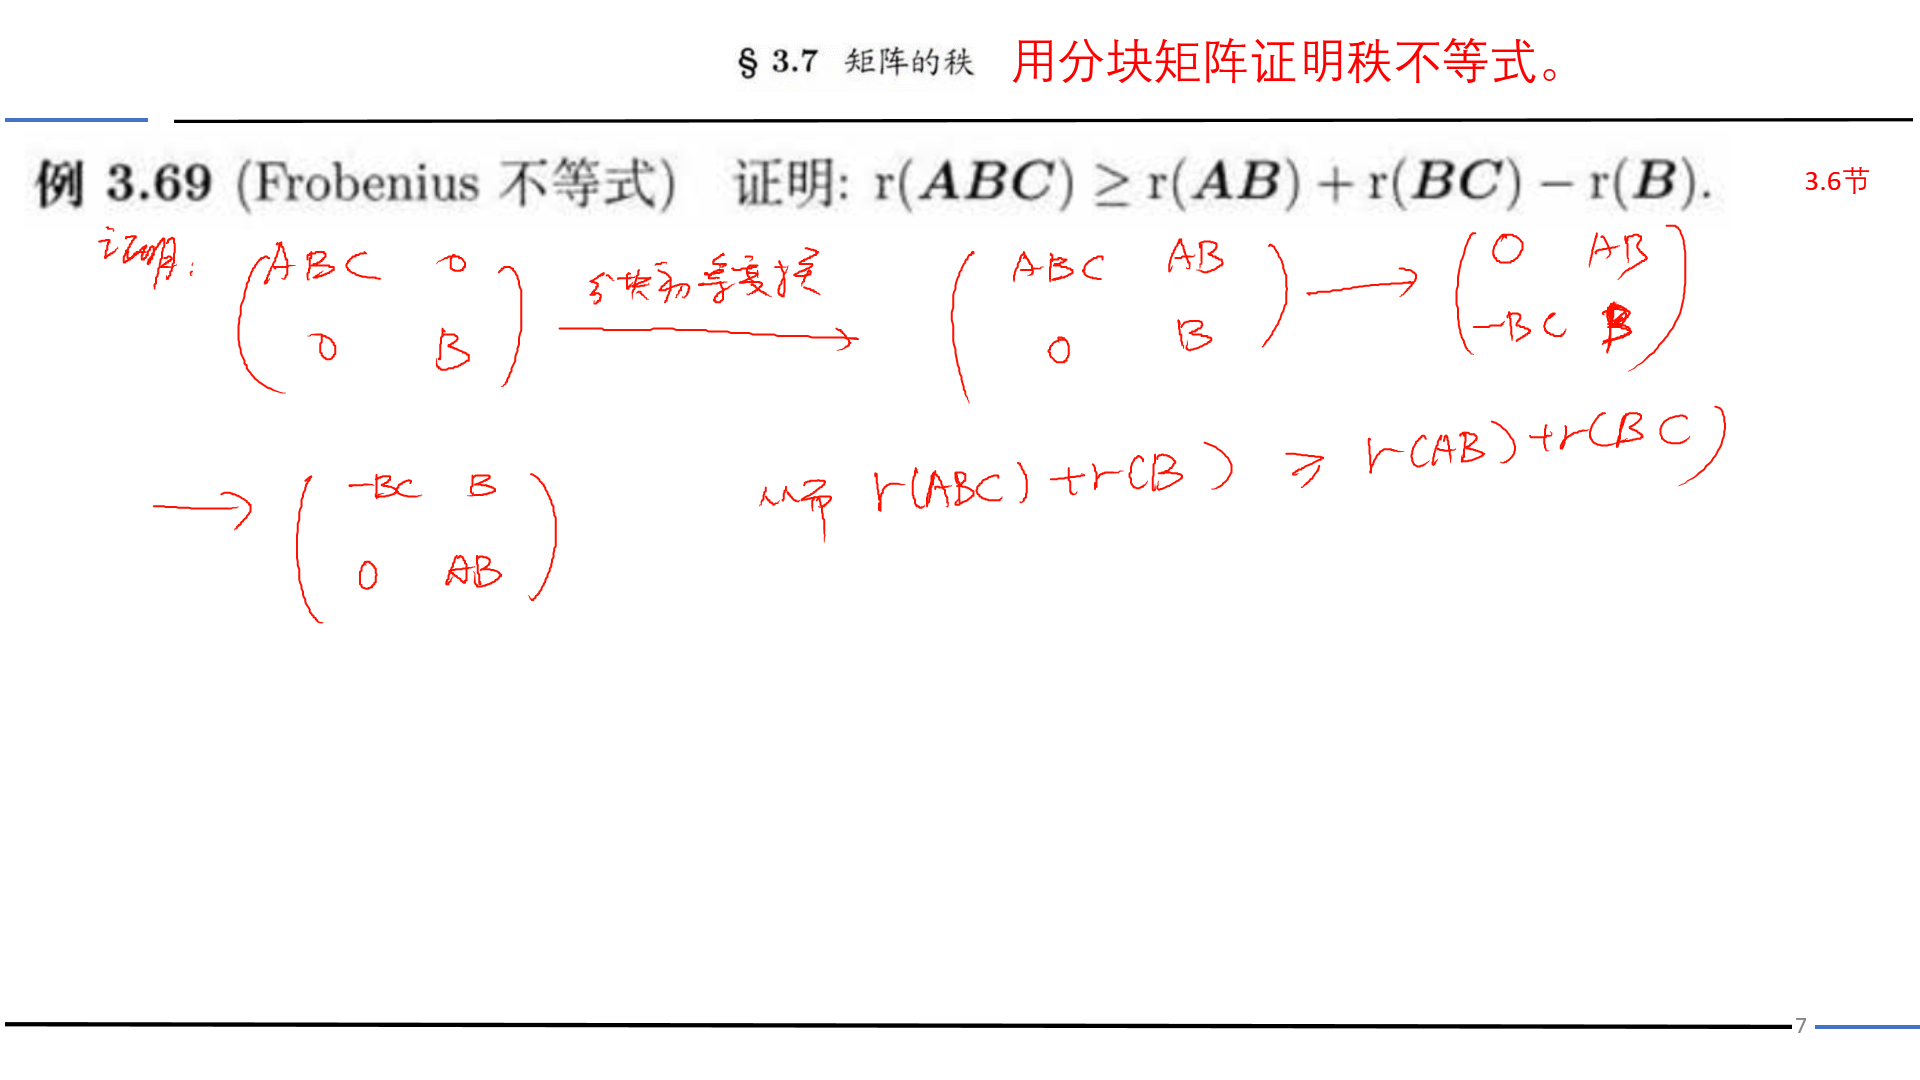 § 3.7 矩阵的秩 用分块矩阵证明秩不等式。
例 3.69 (Frobenius 不等式) 证明: r(ABC) ≥ r(AB) + r(BC) − r(B). 3.6节
证明:
( ABC 0 ; 0 B ) 分块初等变换 → ( ABC AB ; 0 B ) → ( 0 AB ; -BC B )
→ ( -BC B ; 0 AB ) 从而 r(ABC) + r(B) ≥ r(AB) + r(BC)
7